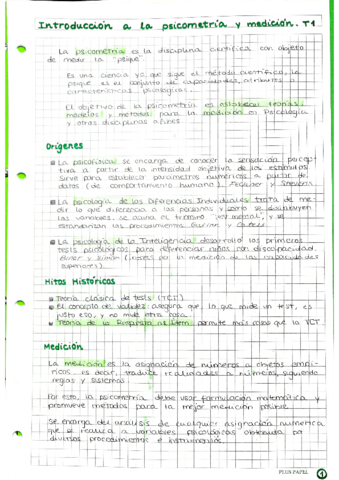 Introducción a la psicometría y medición. T1
La psicometría es la disciplina científica con objeto
de medir la "psique"
Es una ciencia ya que sigue el método científico, la
psique es el conjunto de capacidades, atributos o
características psicológicas.
El objetivo de la psicometría es establecer teorías,
modelos y métodos para la medición en Psicología
y otras disciplinas afines
Orígenes
La psicofísica se encarga de conocer la sensación percep
tiva a partir de la intensidad objetiva de los estímulos
Sirve para establecer parámetros numéricos a partir de
datos (de comportamiento humano). y Stevens
La psicología de las Diferencias Individuales trata de me-
dir lo que diferencia a las personas y como se distribuyen
las variables, se acuña el término "test mental", y se
estandarizan los procedimientos. Galton y Cattell
La psicología de la Inteligencia desarrolló los primeros
tests psicológicos para diferenciar niños con discapacidad,
Binet y Simon ( por la medición de las capacidades
superiores)
Hitos Históricos
Teoría clásica de tests (TCT)
El concepto de validez asegura que, lo que mide un test, es
justo eso, y no mide otra cosa.
Teoría de la Respuesta al Ítem permite más cosas que la TCT
Medición
La medición es la asignación de números a objetos empí-
ricos es decir, traduce realidades a números, siguiendo
reglas y sistemas.
Por esto, la psicometría debe usar formulación matemática y
promueve métodos para la mejor medición posible
Se encarga del análisis de cualquier asignación numérica
que se realiza a variables psicológicas obtenida por
diversos procedimientos e instrumentos.
PLUS PAPEL
1